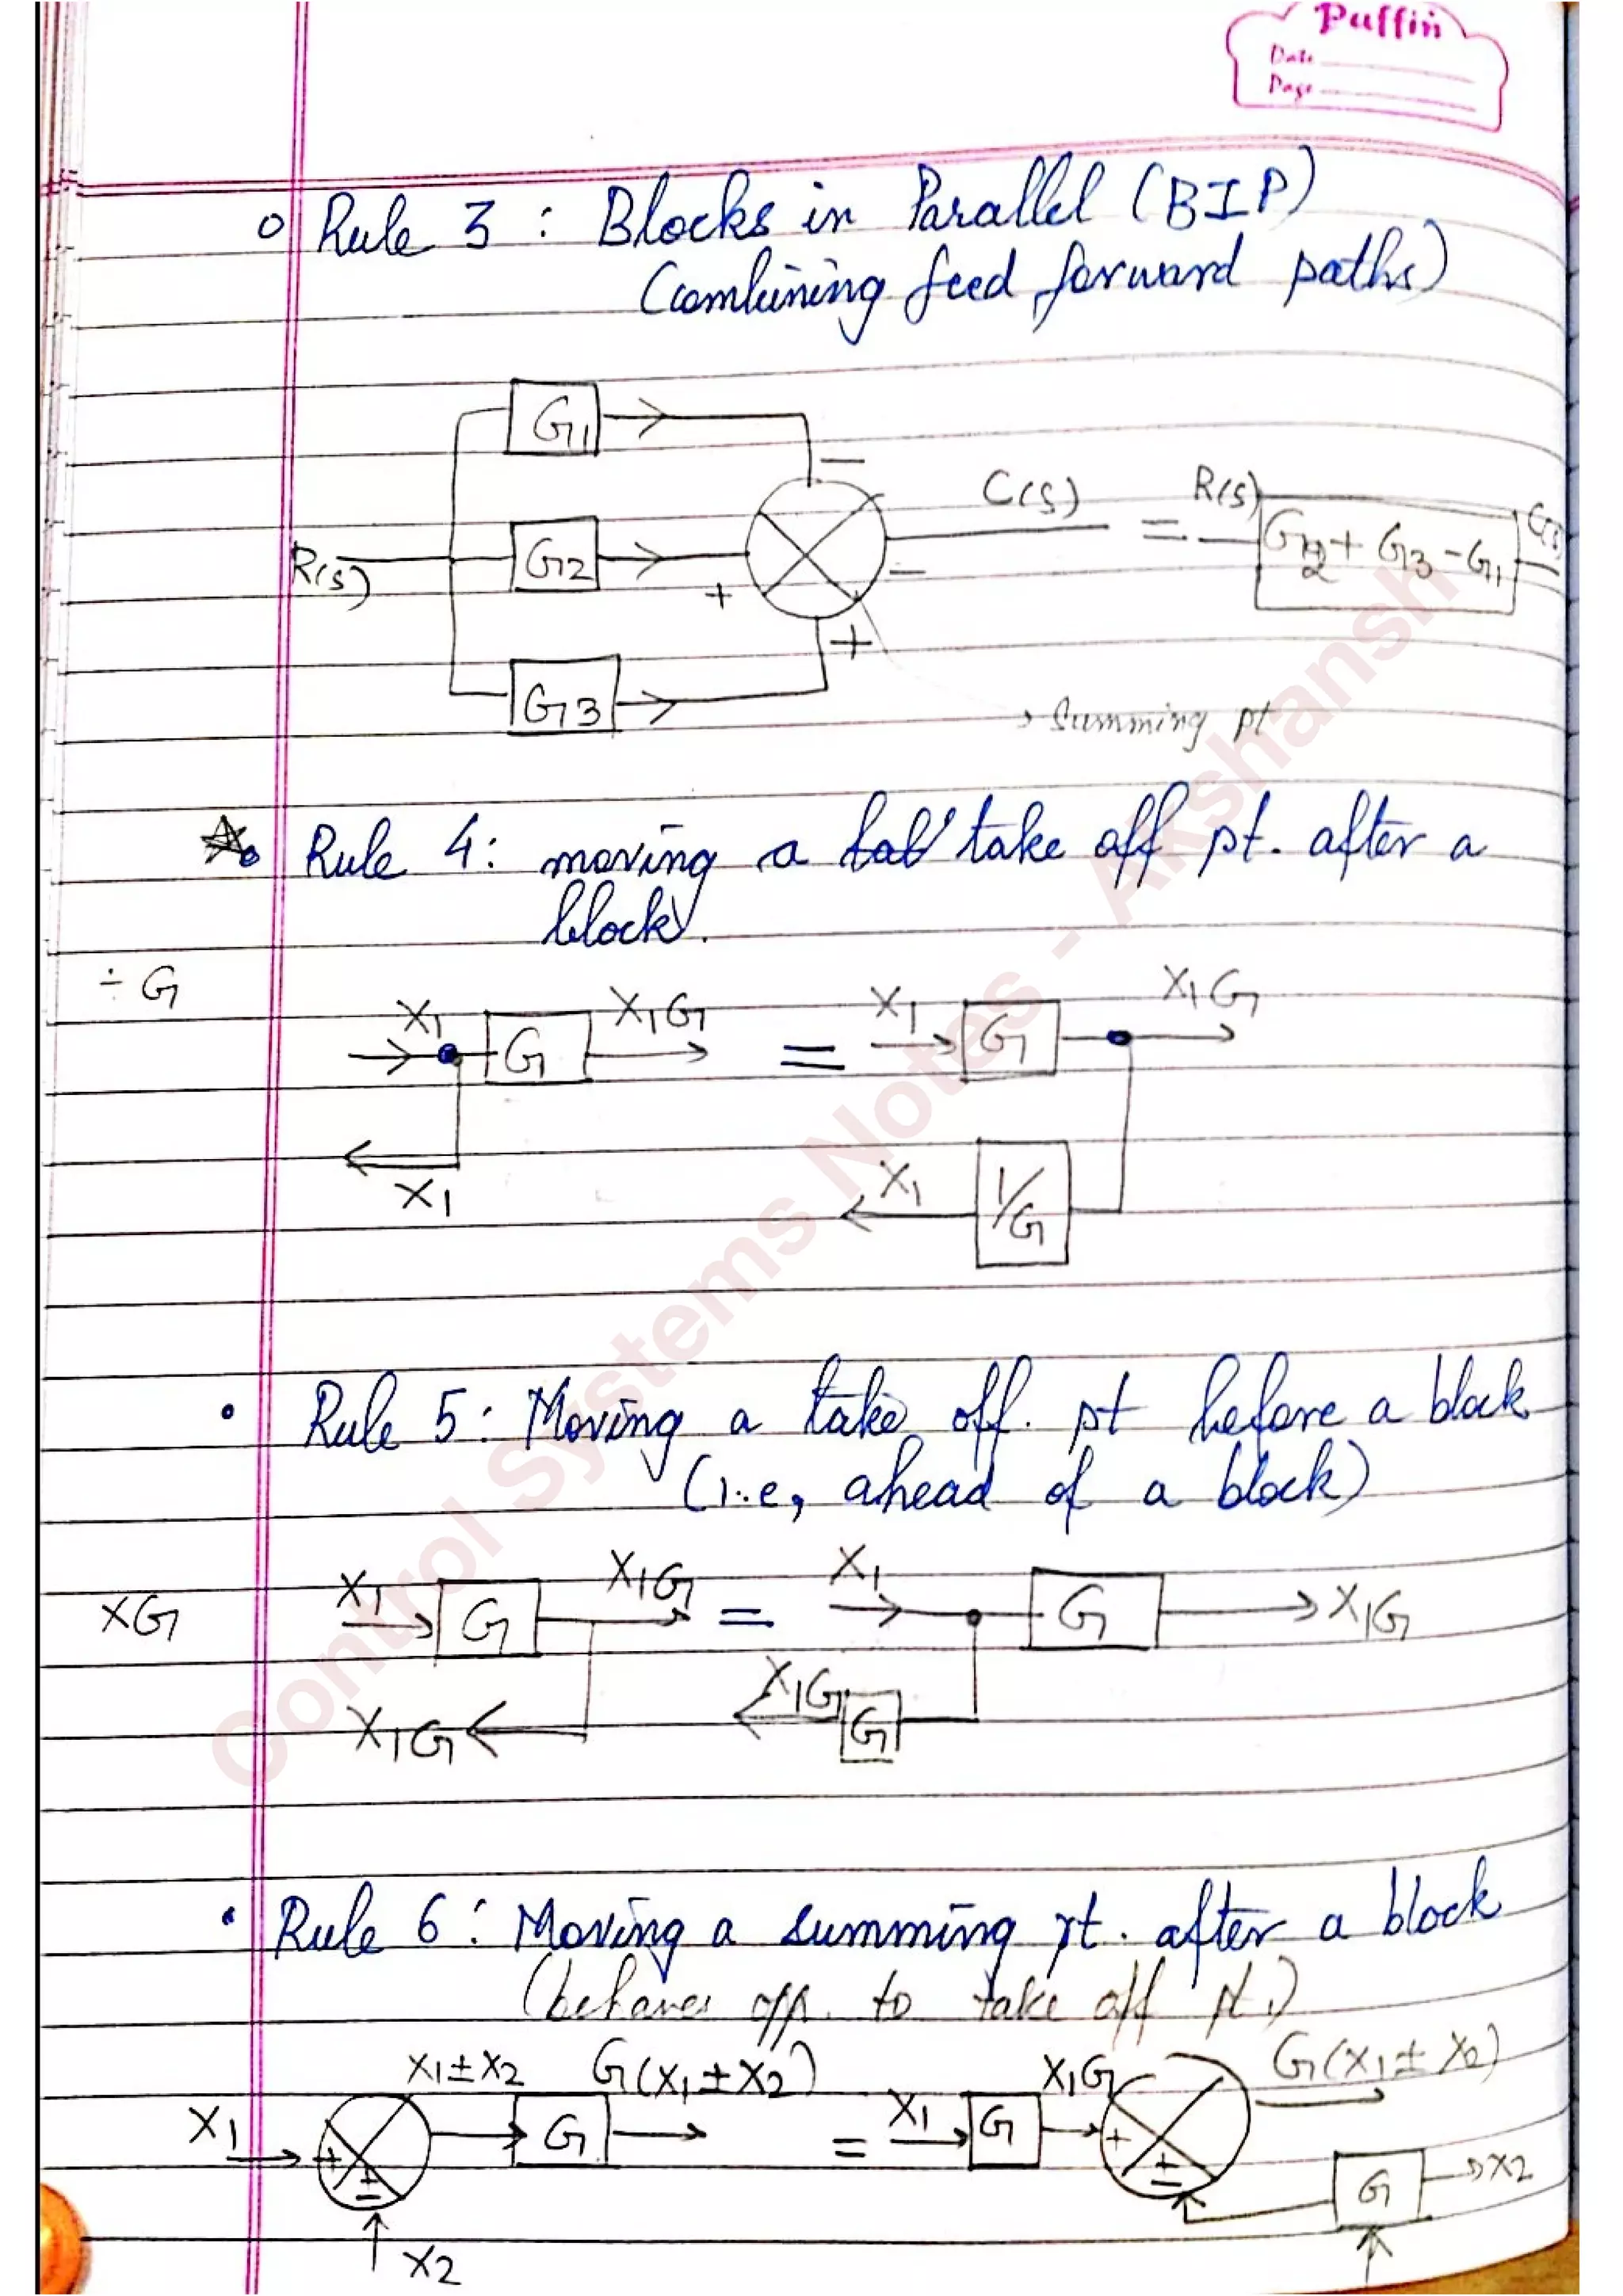 Puffin
Date
Page
Rule 3 : Blocks in Parallel (BIP)
(combining feed forward paths)
G1
−
R(s)
G2
+
C(s)
−
=
R(s)
G2 + G3 - G1
+
G3
Summing pt
Rule 4: moving a take off pt. after a
block.
÷ G
X1
G
X1G
=
X1
G
X1G
X1
X1
1/G
Rule 5: Moving a take off. pt before a block
(i.e, ahead of a block)
XG
X1
G
X1G
=
X1
G
X1G
X1G
X1G
G
Rule 6: Moving a summing pt. after a block
(behaves opp. to take off pt.)
X1
X1±X2
G
G(X1±X2)
=
X1
G
X1G
G(X1±X2)
+
±
+
±
G
X2
X2
Control Systems Notes - Akshansh